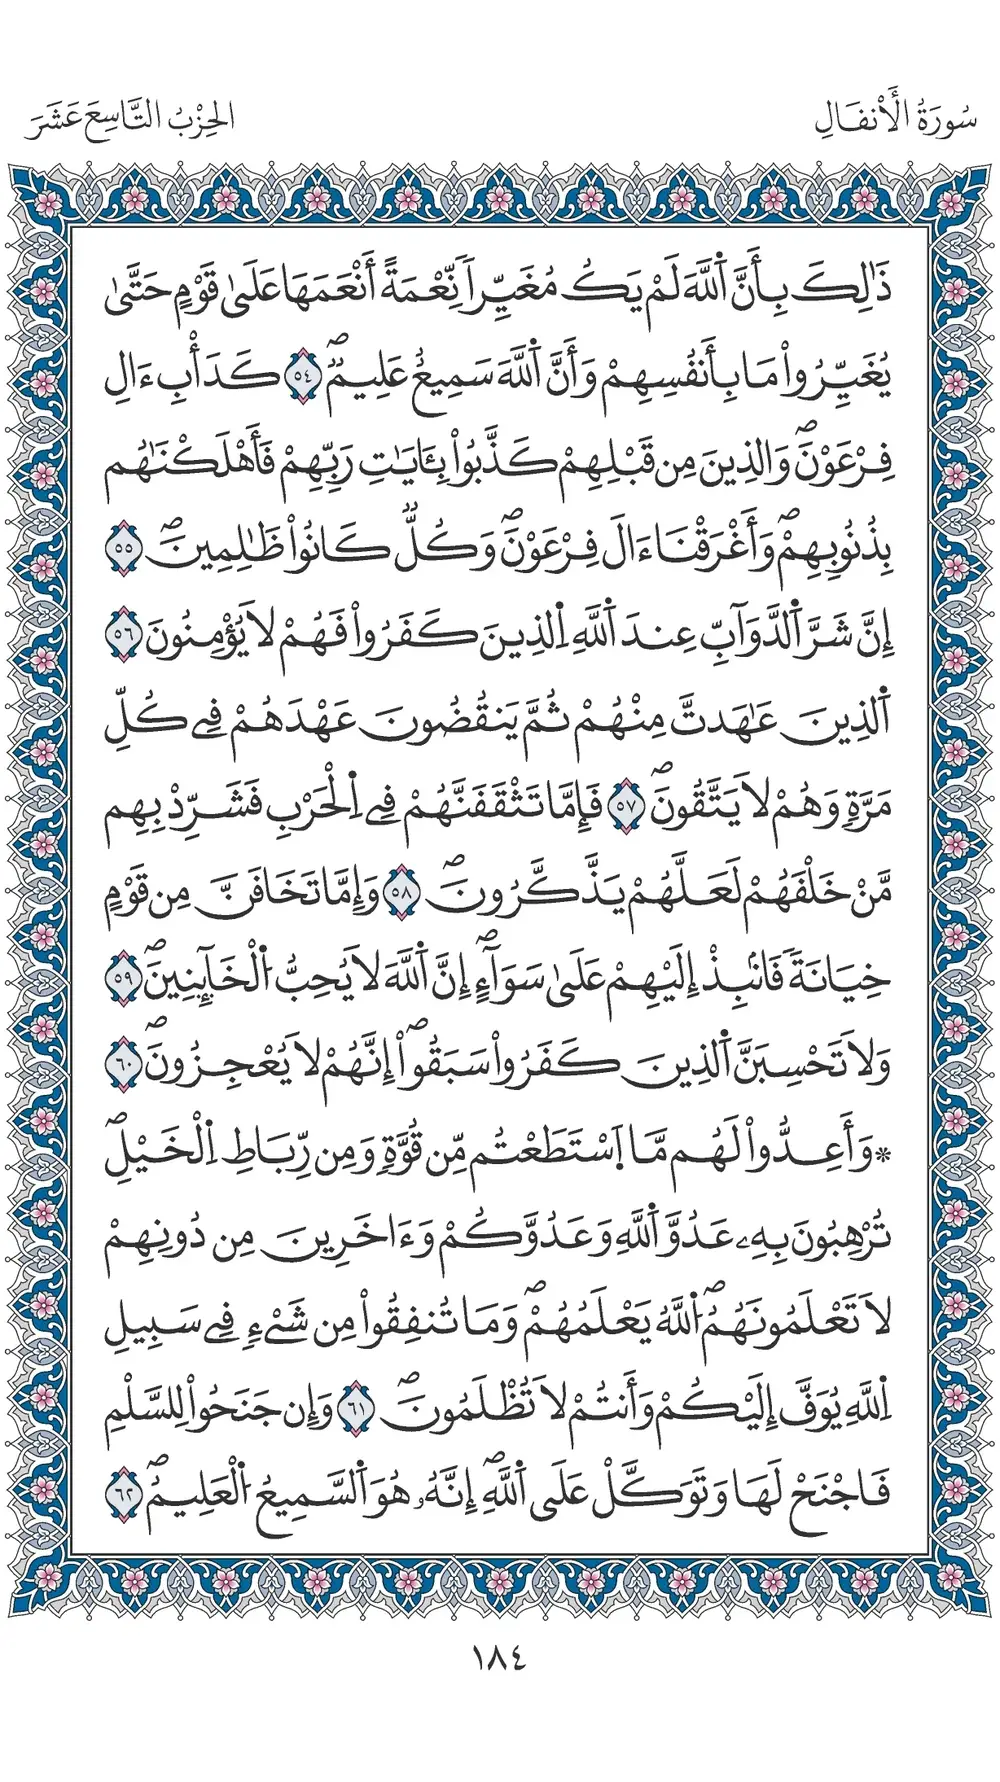 سُورَةُ الْأَنفَالِ
الحِزْبُ التَّاسِعَ عَشَرَ
ذَٰلِكَ بِأَنَّ اَ۬للَّهَ لَمْ يَكُ مُغَيِّراٗ نِّعْمَةً أَنْعَمَهَا عَلَىٰ قَوْمٍ حَتَّىٰ
يُغَيِّرُواْ مَا بِأَنفُسِهِمْ وَأَنَّ اَ۬للَّهَ سَمِيعٌ عَلِيمٞۖ ٥٤ كَدَأْبِ ءَالِ
فِرْعَوْنَۖ وَالذِينَ مِن قَبْلِهِمْ كَذَّبُواْ بِـَٔايَٰتِ رَبِّهِمْ فَأَهْلَكْنَٰهُم
بِذُنُوبِهِمْۖ وَأَغْرَقْنَا ءَالَ فِرْعَوْنَۖ وَكُلّٞ كَانُواْ ظَٰلِمِينَۖ ٥٥
إِنَّ شَرَّ اَ۬لدَّوَآبِّ عِندَ اَ۬للَّهِ اِ۬لذِينَ كَفَرُواْ فَهُمْ لَا يُؤْمِنُونَ ٥٦
اَ۬لذِينَ عَٰهَدتَّ مِنْهُمْ ثُمَّ يَنقُضُونَ عَهْدَهُمْ فِے كُلِّ
مَرَّةٖ وَهُمْ لَا يَتَّقُونَۖ ٥٧ فَإِمَّا تَثْقَفَنَّهُمْ فِے اِ۬لْحَرْبِ فَشَرِّدْ بِهِم
مَّنْ خَلْفَهُمْ لَعَلَّهُمْ يَذَّكَّرُونَۖ ٥٨ وَإِمَّا تَخَافَنَّ مِن قَوْمٍ
خِيَانَةٗ فَانۢبِذْ إِلَيْهِمْ عَلَىٰ سَوَآءٍۖ اِنَّ اَ۬للَّهَ لَا يُحِبُّ اُ۬لْخَآئِنِينَۖ ٥٩
وَلَا تَحْسِبَنَّ اَ۬لذِينَ كَفَرُواْ سَبَقُوٓاْۖ إِنَّهُمْ لَا يُعْجِزُونَۖ ٦٠
۞وَأَعِدُّواْ لَهُم مَّا اَ۪سْتَطَعْتُم مِّن قُوَّةٖ وَمِن رِّبَاطِ اِ۬لْخَيْلِۖ
تُرْهِبُونَ بِهِۦ عَدُوَّ اَ۬للَّهِ وَعَدُوَّكُمْ وَءَاخَرِينَ مِن دُونِهِمْ
لَا تَعْلَمُونَهُمُۖ اُ۬للَّهُ يَعْلَمُهُمْۖ وَمَا تُنفِقُواْ مِن شَےْءٖ فِے سَبِيلِ
اِ۬للَّهِ يُوَفَّ إِلَيْكُمْ وَأَنتُمْ لَا تُظْلَمُونَۖ ٦١ وَإِن جَنَحُواْ لِلسَّلْمِ
فَاجْنَحْ لَهَا وَتَوَكَّلْ عَلَى اَ۬للَّهِۖ إِنَّهُۥ هُوَ اَ۬لسَّمِيعُ اُ۬لْعَلِيمُۖ ٦٢
١٨٤